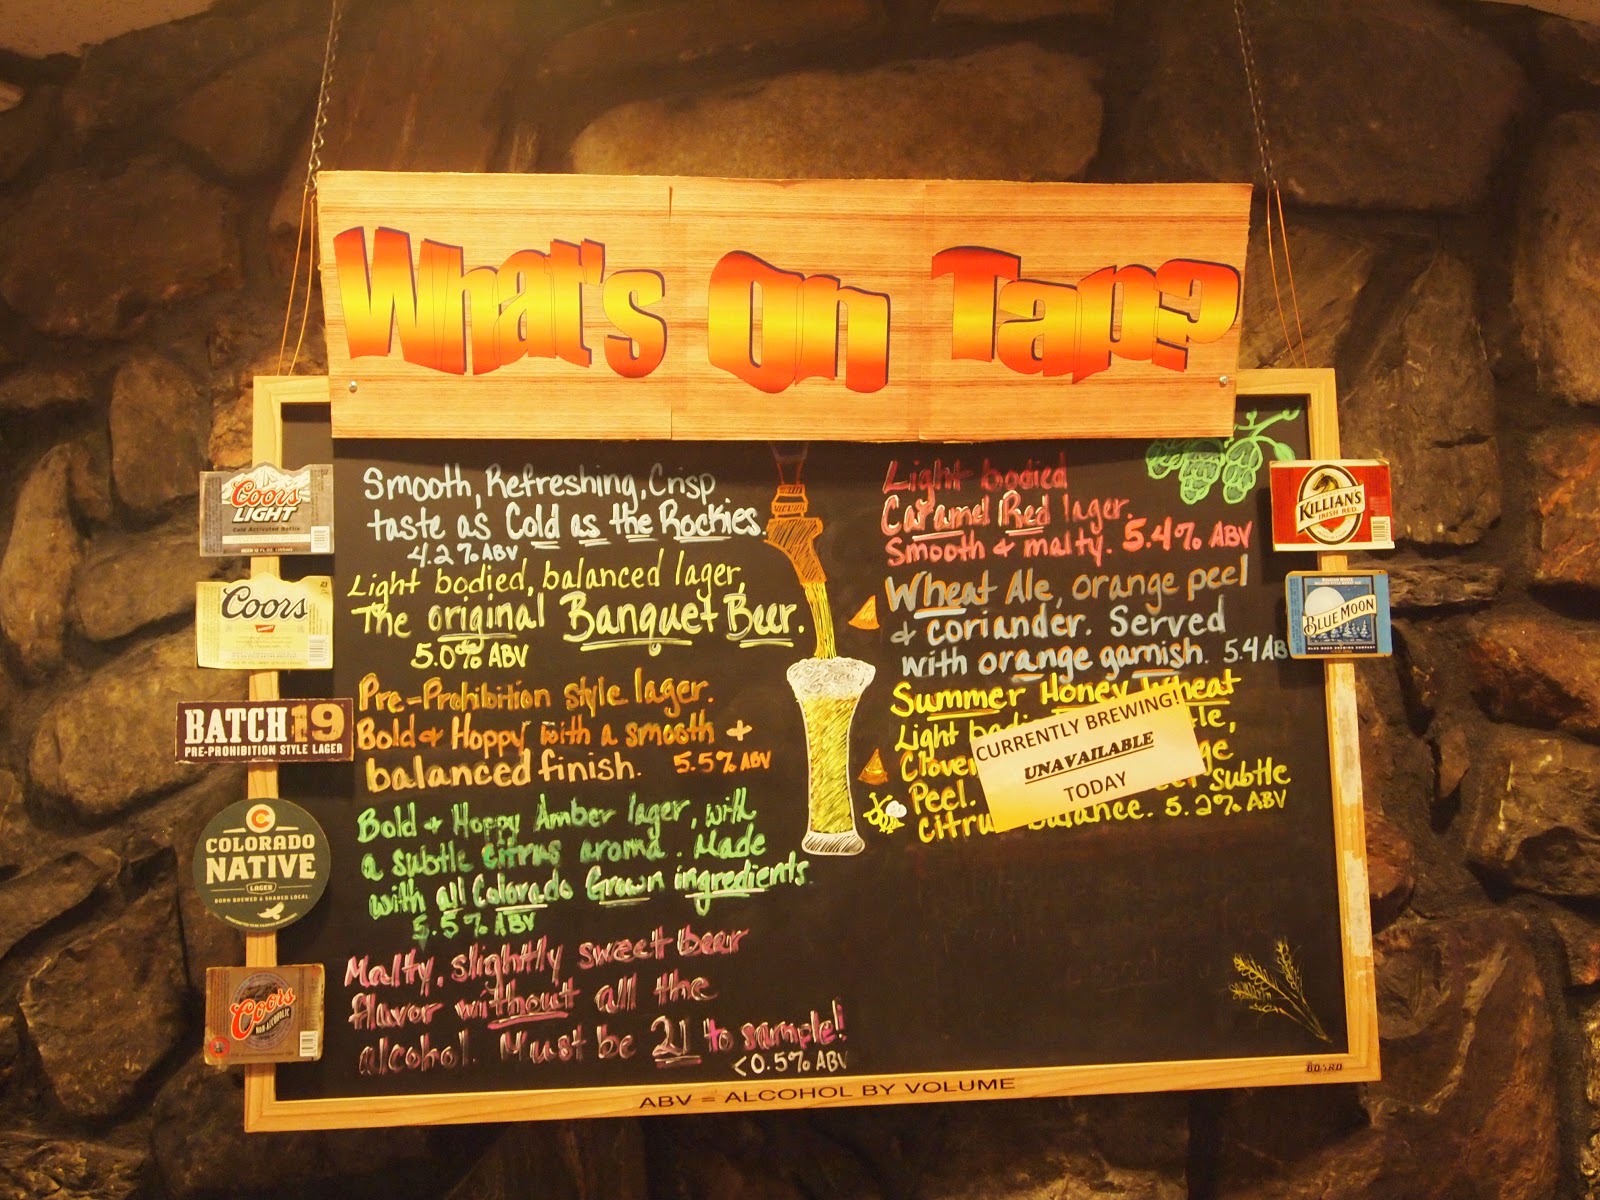 What's On Tap?
Coors
LIGHT
Smooth, Refreshing, Crisp
taste as Cold as the Rockies.
4.2% ABV
Coors
Light bodied, balanced lager,
The original Banquet Beer.
5.0% ABV
BATCH 19
PRE-PROHIBITION STYLE LAGER
Pre-Prohibition style lager.
Bold & Hoppy with a smooth &
balanced finish. 5.5% ABV
COLORADO
NATIVE
LAGER
BORN BREWED & SHARED LOCAL
Bold & Hoppy Amber lager, with
a subtle citrus aroma. Made
with all Colorado Grown ingredients.
5.5% ABV
Coors
NON-ALCOHOLIC
Malty, slightly sweet beer
flavor without all the
alcohol. Must be 21 to sample!
<0.5% ABV
Light bodied
Caramel Red lager.
Smooth & malty. 5.4% ABV
KILLIAN'S
IRISH RED
Wheat Ale, orange peel
& coriander. Served
with orange garnish. 5.4 AB
BLUE MOON
Summer Honey Wheat
Light
Clover
Peel. subtle
citrus balance. 5.2% ABV
CURRENTLY BREWING!
UNAVAILABLE
TODAY
ABV = ALCOHOL BY VOLUME